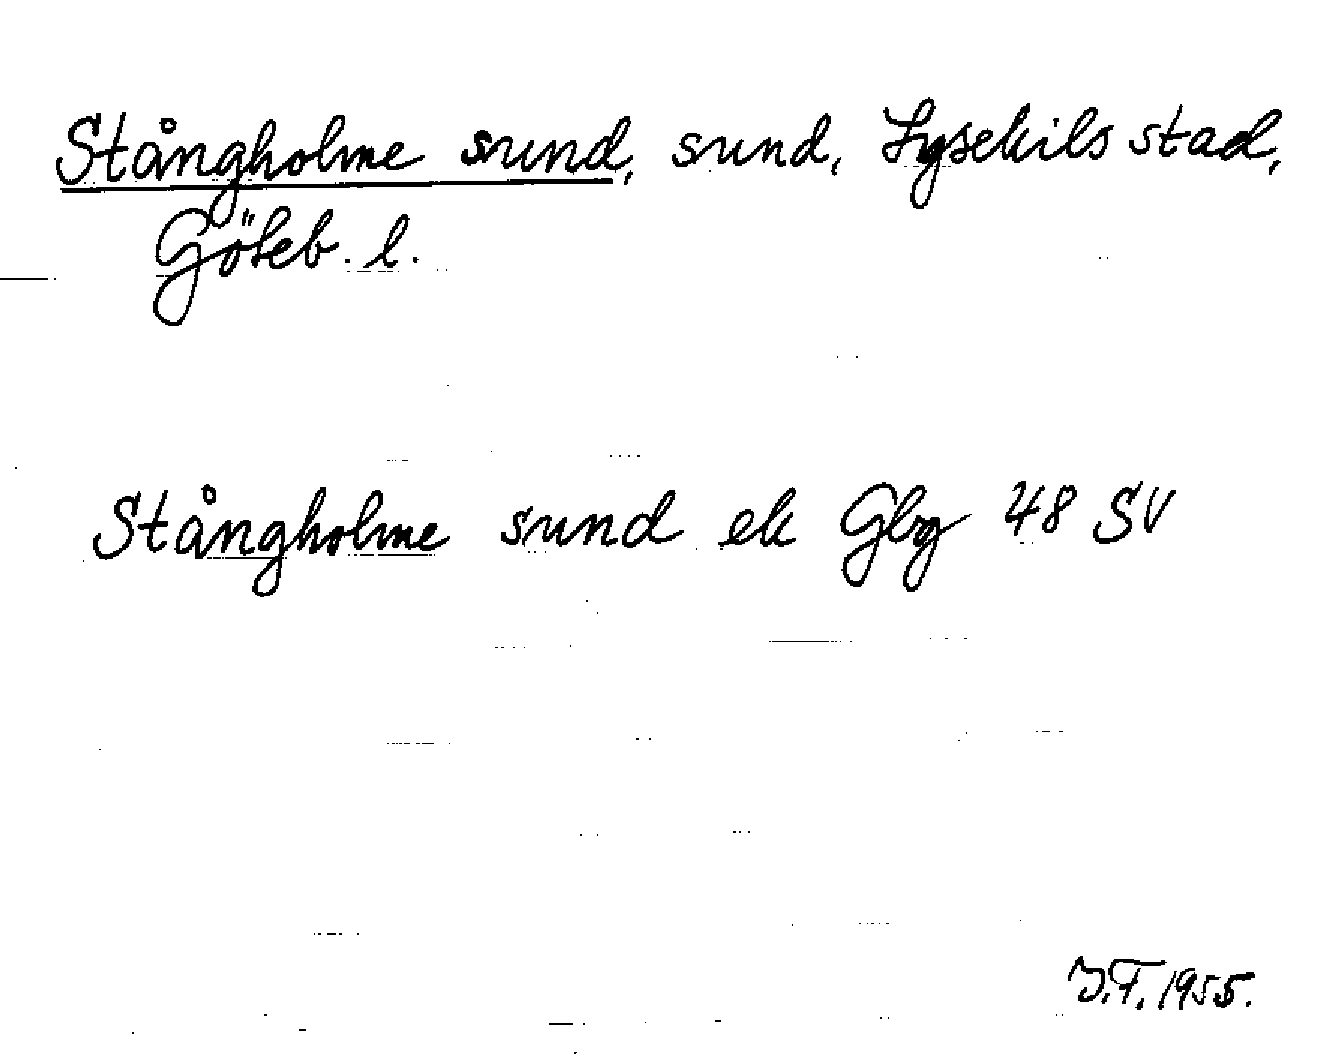 Stångholme sund, sund, Lysekils stad,
Göteb. l.
Stångholme sund ek Gbg 48 SV
I.F. 1955.